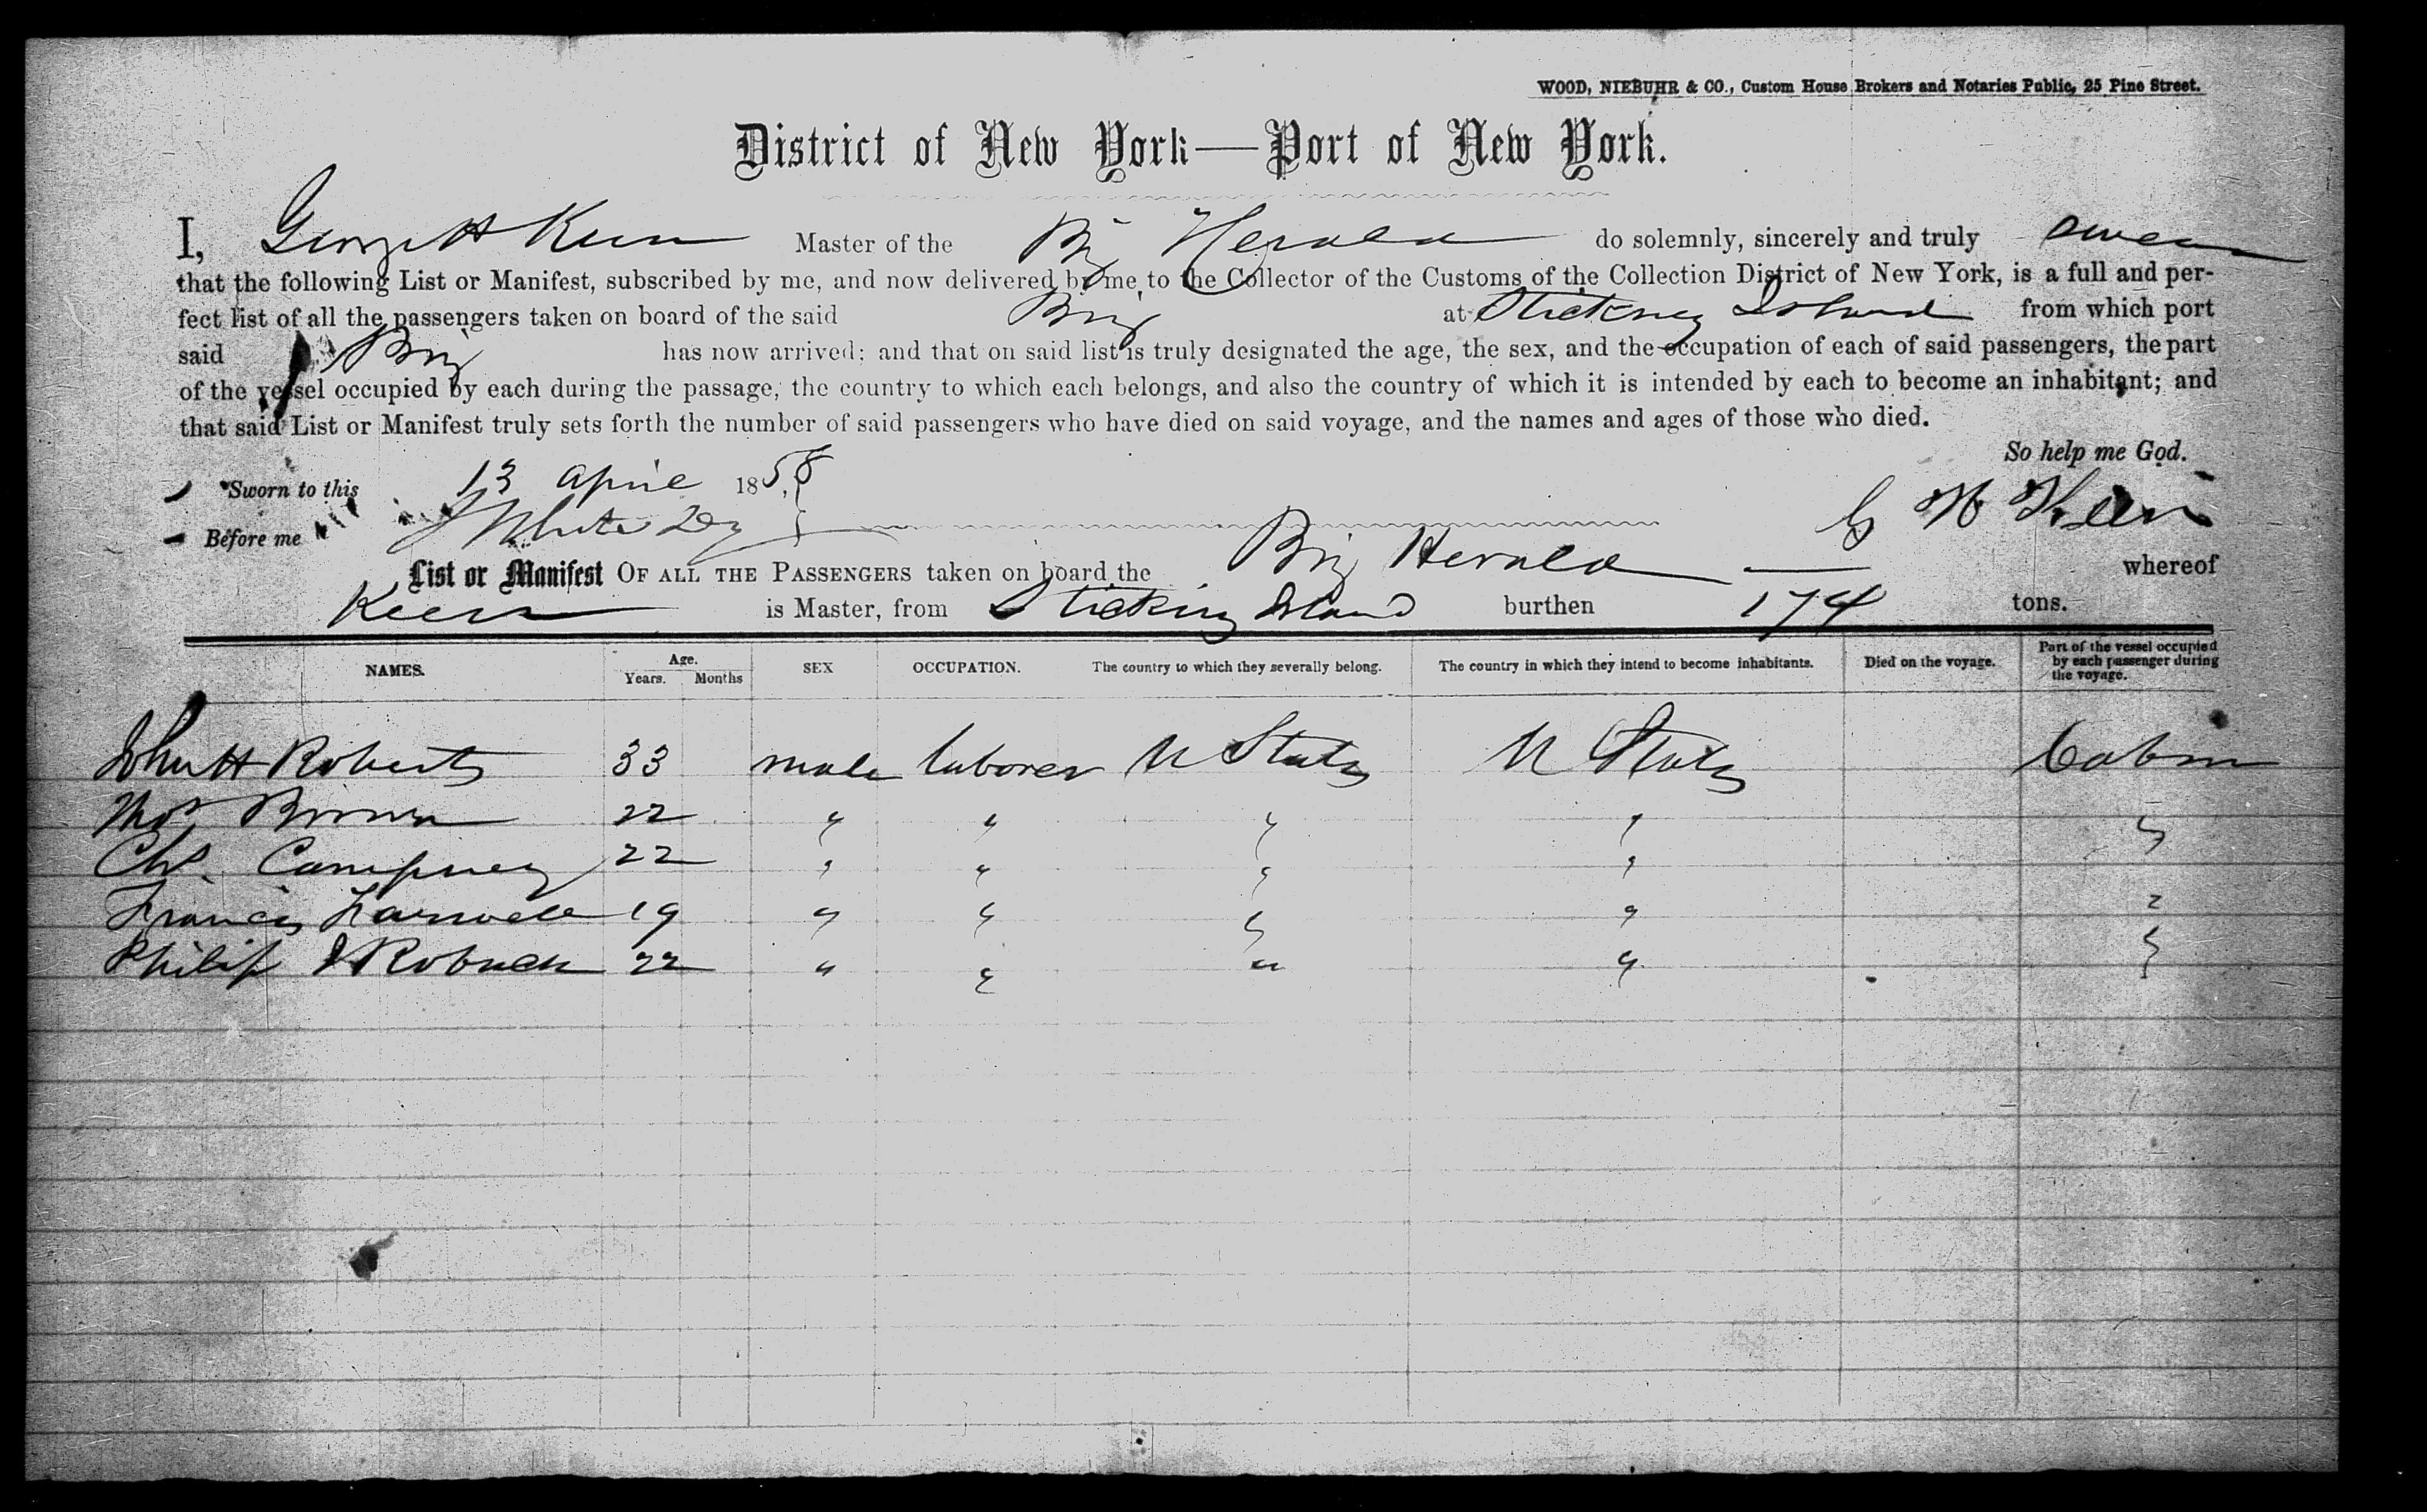 WOOD, NIEBUHR & CO., Custom House Brokers and Notaries Public, 25 Pine Street.
District of New York—Port of New York.
I, George H Keen Master of the Brig Herald do solemnly, sincerely and truly swear
that the following List or Manifest, subscribed by me, and now delivered by me to the Collector of the Customs of the Collection District of New York, is a full and per-
fect list of all the passengers taken on board of the said Brig at Stickney Island from which port
said Brig has now arrived; and that on said list is truly designated the age, the sex, and the occupation of each of said passengers, the part
of the vessel occupied by each during the passage, the country to which each belongs, and also the country of which it is intended by each to become an inhabitant; and
that said List or Manifest truly sets forth the number of said passengers who have died on said voyage, and the names and ages of those who died.
So help me God.
Sworn to this 13 April 1858
Before me White G H Keen
List or Manifest OF ALL THE PASSENGERS taken on board the Brig Herald whereof
Keen is Master, from Sticking Island burthen 174 tons.
NAMES. Age. Years. Months SEX OCCUPATION. The country to which they severally belong. The country in which they intend to become inhabitants. Died on the voyage. Part of the vessel occupied by each passenger during the voyage.
John H Roberts 33 male laborer U States U States Cabin
Thos Brown 22 " " " " "
Chs. 22 " " " " "
Francis Farwell 19 " " " " "
Philip J Robuck 22 " " " " "